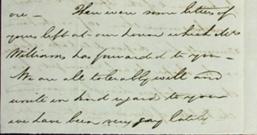 are - There were some letters of
yours left at our house which Mr
Williams has forwarded to you -
We are all tolerably well and
unite in kind regard to you
we have been very gay lately